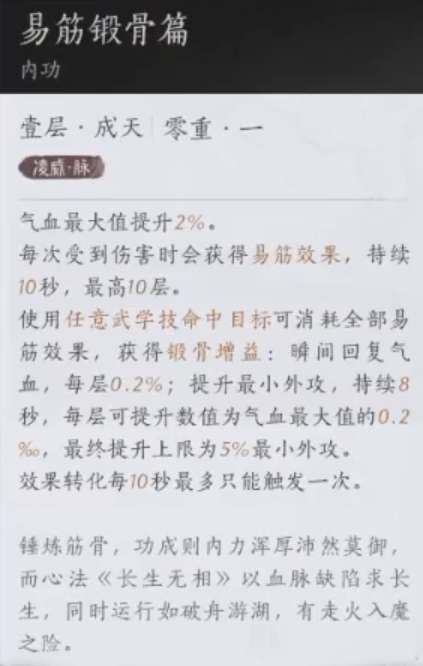 易筋锻骨篇
内功
壹层·成天 零重·一
凌威·脉
气血最大值提升2%。
每次受到伤害时会获得易筋效果，持续
10秒，最高10层。
使用任意武学技命中目标可消耗全部易
筋效果，获得锻骨增益：瞬间回复气
血，每层0.2%；提升最小外攻，持续8
秒，每层可提升数值为气血最大值的0.2
‰，最终提升上限为5%最小外攻。
效果转化每10秒最多只能触发一次。
锤炼筋骨，功成则内力浑厚沛然莫御，
而心法《长生无相》以血脉缺陷求长
生，同时运行如破舟游湖，有走火入魔
之险。